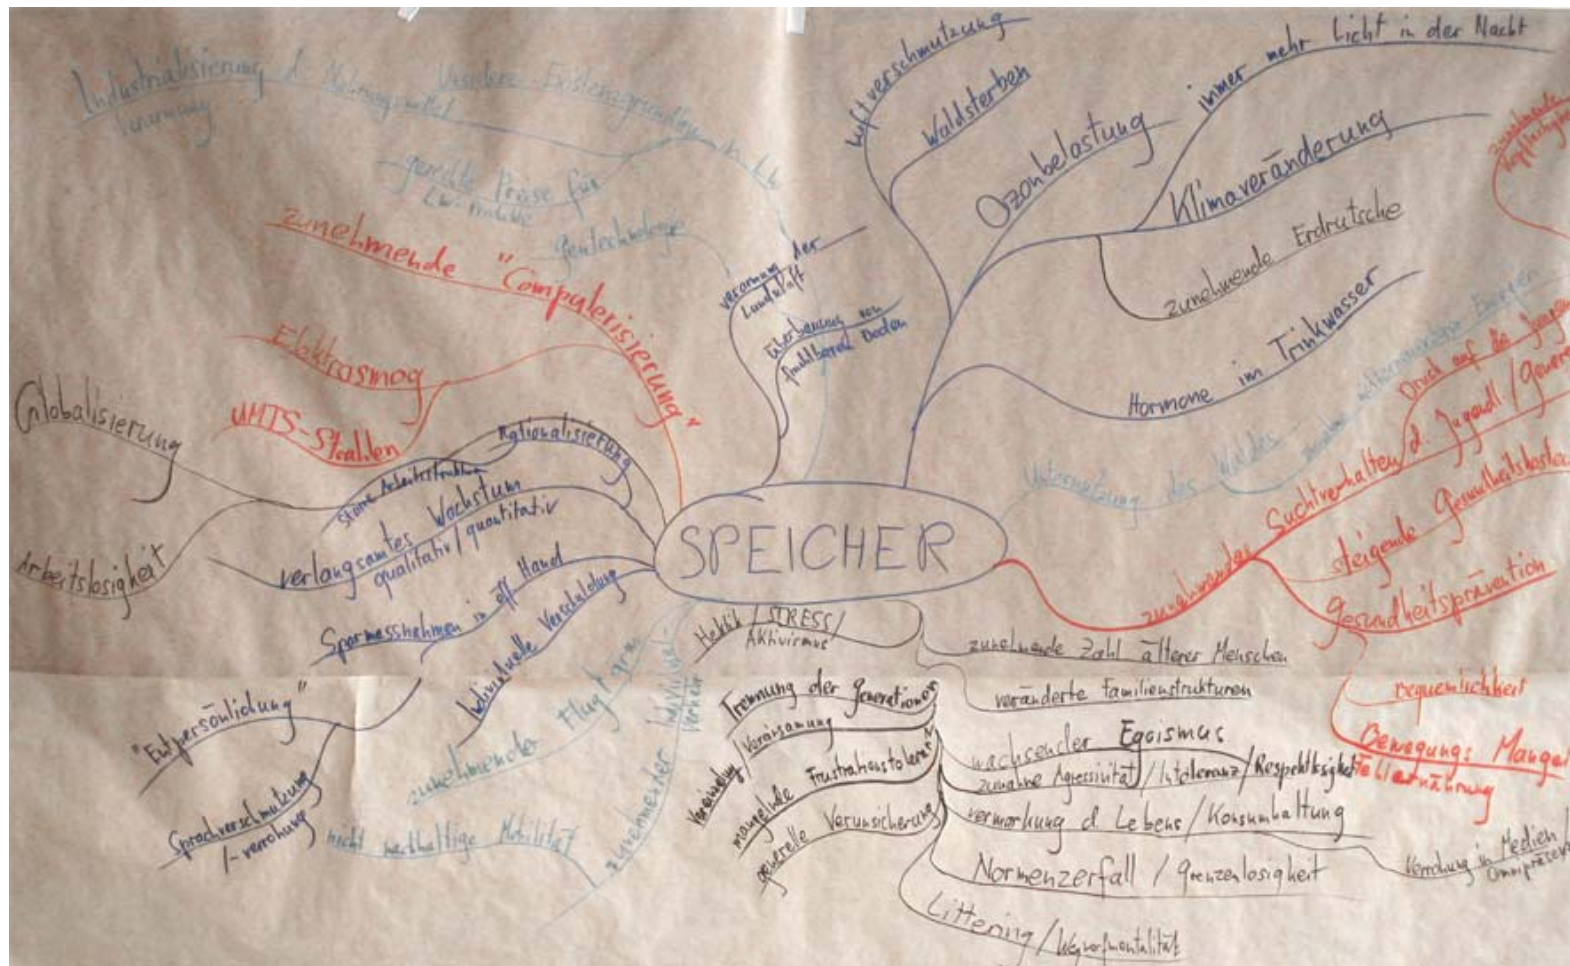 Industrialisierung d. Nahrungsmittel
Verarmung
Unsichere Existenzgrundlage in LW
gerechte Preise für
LW-Produkte
Gentechnologie
zunehmende "Computerisierung"
Elektrosmog
UMTS-Strahlen
Globalisierung
Arbeitslosigkeit
Rationalisierung
Starre Arbeitsstruktur
verlangsamtes Wachstum
qualitativ/quantitativ
Sparmassnahmen in öff Hand
Individuelle Verschuldung
"Entpersönlichung"
Sprachverschmutzung
/-verrohung
verarmung der
Landschaft
überbauung von
fruchtbarem Boden
Luftverschmutzung
Waldsterben
Ozonbelastung
immer mehr Licht in der Nacht
Klimaveränderung
zunehmende Erdrutsche
Hormone im Trinkwasser
zunehmende
Unternutzung des Waldes
SPEICHER
zunehmendes Suchtverhalten d. Jugendl/
Druck auf die
steigende Gesundheitskosten
Gesundheitsprävention
Bequemlichkeit
Bewegungs Mangel
Fehlernährung
Hektik/STRESS/
Aktivismus
zunehmende Zahl älterer Menschen
veränderte Familienstrukturen
Trennung der Generationen
Vereinsamung
mangelnde Frustrationstoleranz
generelle Verunsicherung
wachsender Egoismus
zunahme Agressivität/Intoleranz/Respektlosigkeit
d. Lebens/Konsumhaltung
Verrohung in Medien/
Normenzerfall / Grenzenlosigkeit
Littering/Wegwerfmentalität
zunehmender Flugl
zunehmender
verkehr
nicht nachhaltige Mobilität